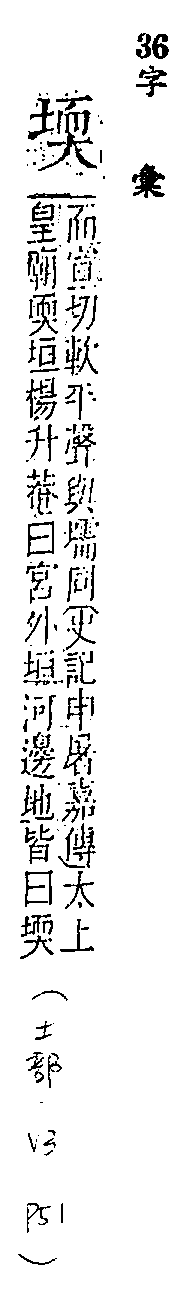 36字　彙
堧
而宣切軟平聲與壖同史記申屠嘉傳太上
皇廟耎垣楊升菴曰宮外垣河邊地皆曰堧
（土部．V3 P51）